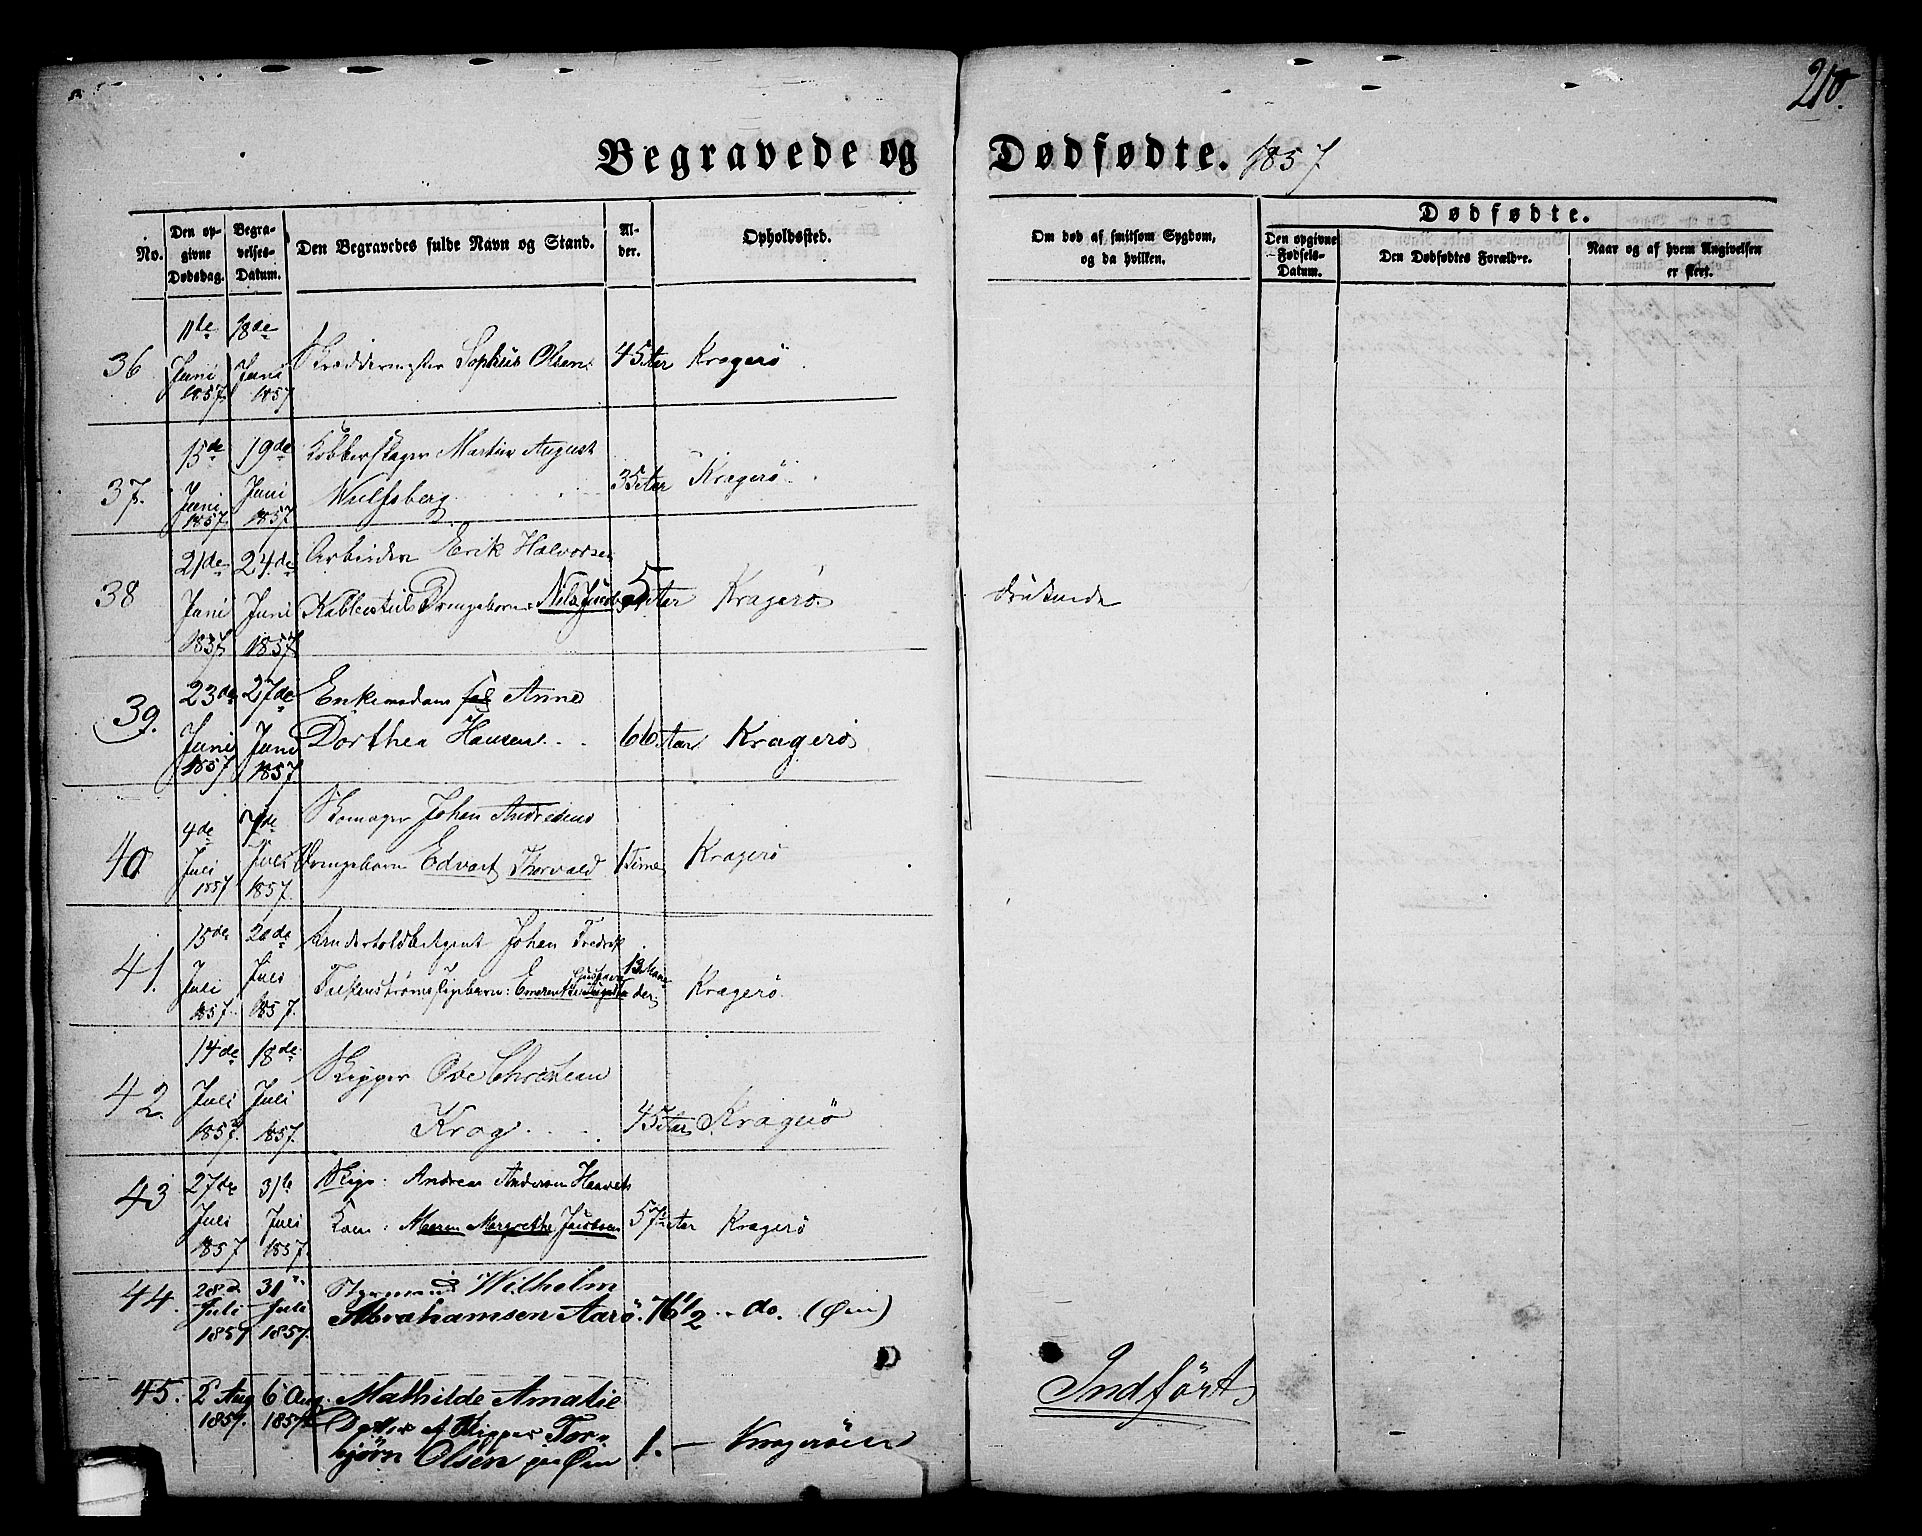 210.
Begravede og Dødfødte. 1857
No.
Den opgivne Dødsdag.
Begravelses-Datum.
Den Begravedes fulde Navn og Stand.
Alder.
Opholdssted.
Om død af smitsom Sygdom, og da hvilken.
Dødfødte.
Den opgivne Fødsels-Datum.
Den Dødfødtes Forældre.
Naar og af hvem Angivelsen er skeet.
36 11te Juni 1857 18de Juni 1857 Skræddermester Sophus Olsen 45 Aar Kragerö
37. 15de Juni 1857. 19de Juni 1857. Kobberslager Martin August
Wulfsberg 35 Aar Kragerö
38 21de Juni 1857. 24de Juni 1857. Arbeider Erik Halvorsen
Drengebarn: Nils Jacob 5 Aar Kragerö. druknede
39. 23de Juni 1857 27de Juni 1857. Enkemadam Anne
Dorthea Hansen 66 Aar. Kragerö
40 4de Juli 1857 7de Juli 1857. Skomager Johan Andresens
Drengebarn Edvart Thorvald 1 Time Kragerö
41. 15de Juli 1857. 20de Juli 1857. Johan Fredrik
Falkenstrøms Pigebarn: Gustava 13 Maaneder Kragerö.
42. 14de Juli 1857. 18de Juli 1857. Skipper Ove Christian
Krog 45 Aar Kragerö
43 27de Juli 1857 31te Juli 1857. Skip: Andreas Andersen
Kone: Maren Margrethe Jacobsen 57 Aar Kragerö
44. 28d Juli 1857 31 Juli 1857. Styrmand Wilhelm
Abrahamsen Aarö. 76 1/2 do. (Øen)
45. 2 Aug 1857. 6 Aug. 1857 Mathilde Amalie
Datter af Skipper Tor-
bjørn Olsen paa Øen 1. — Kragerøen
Indfört